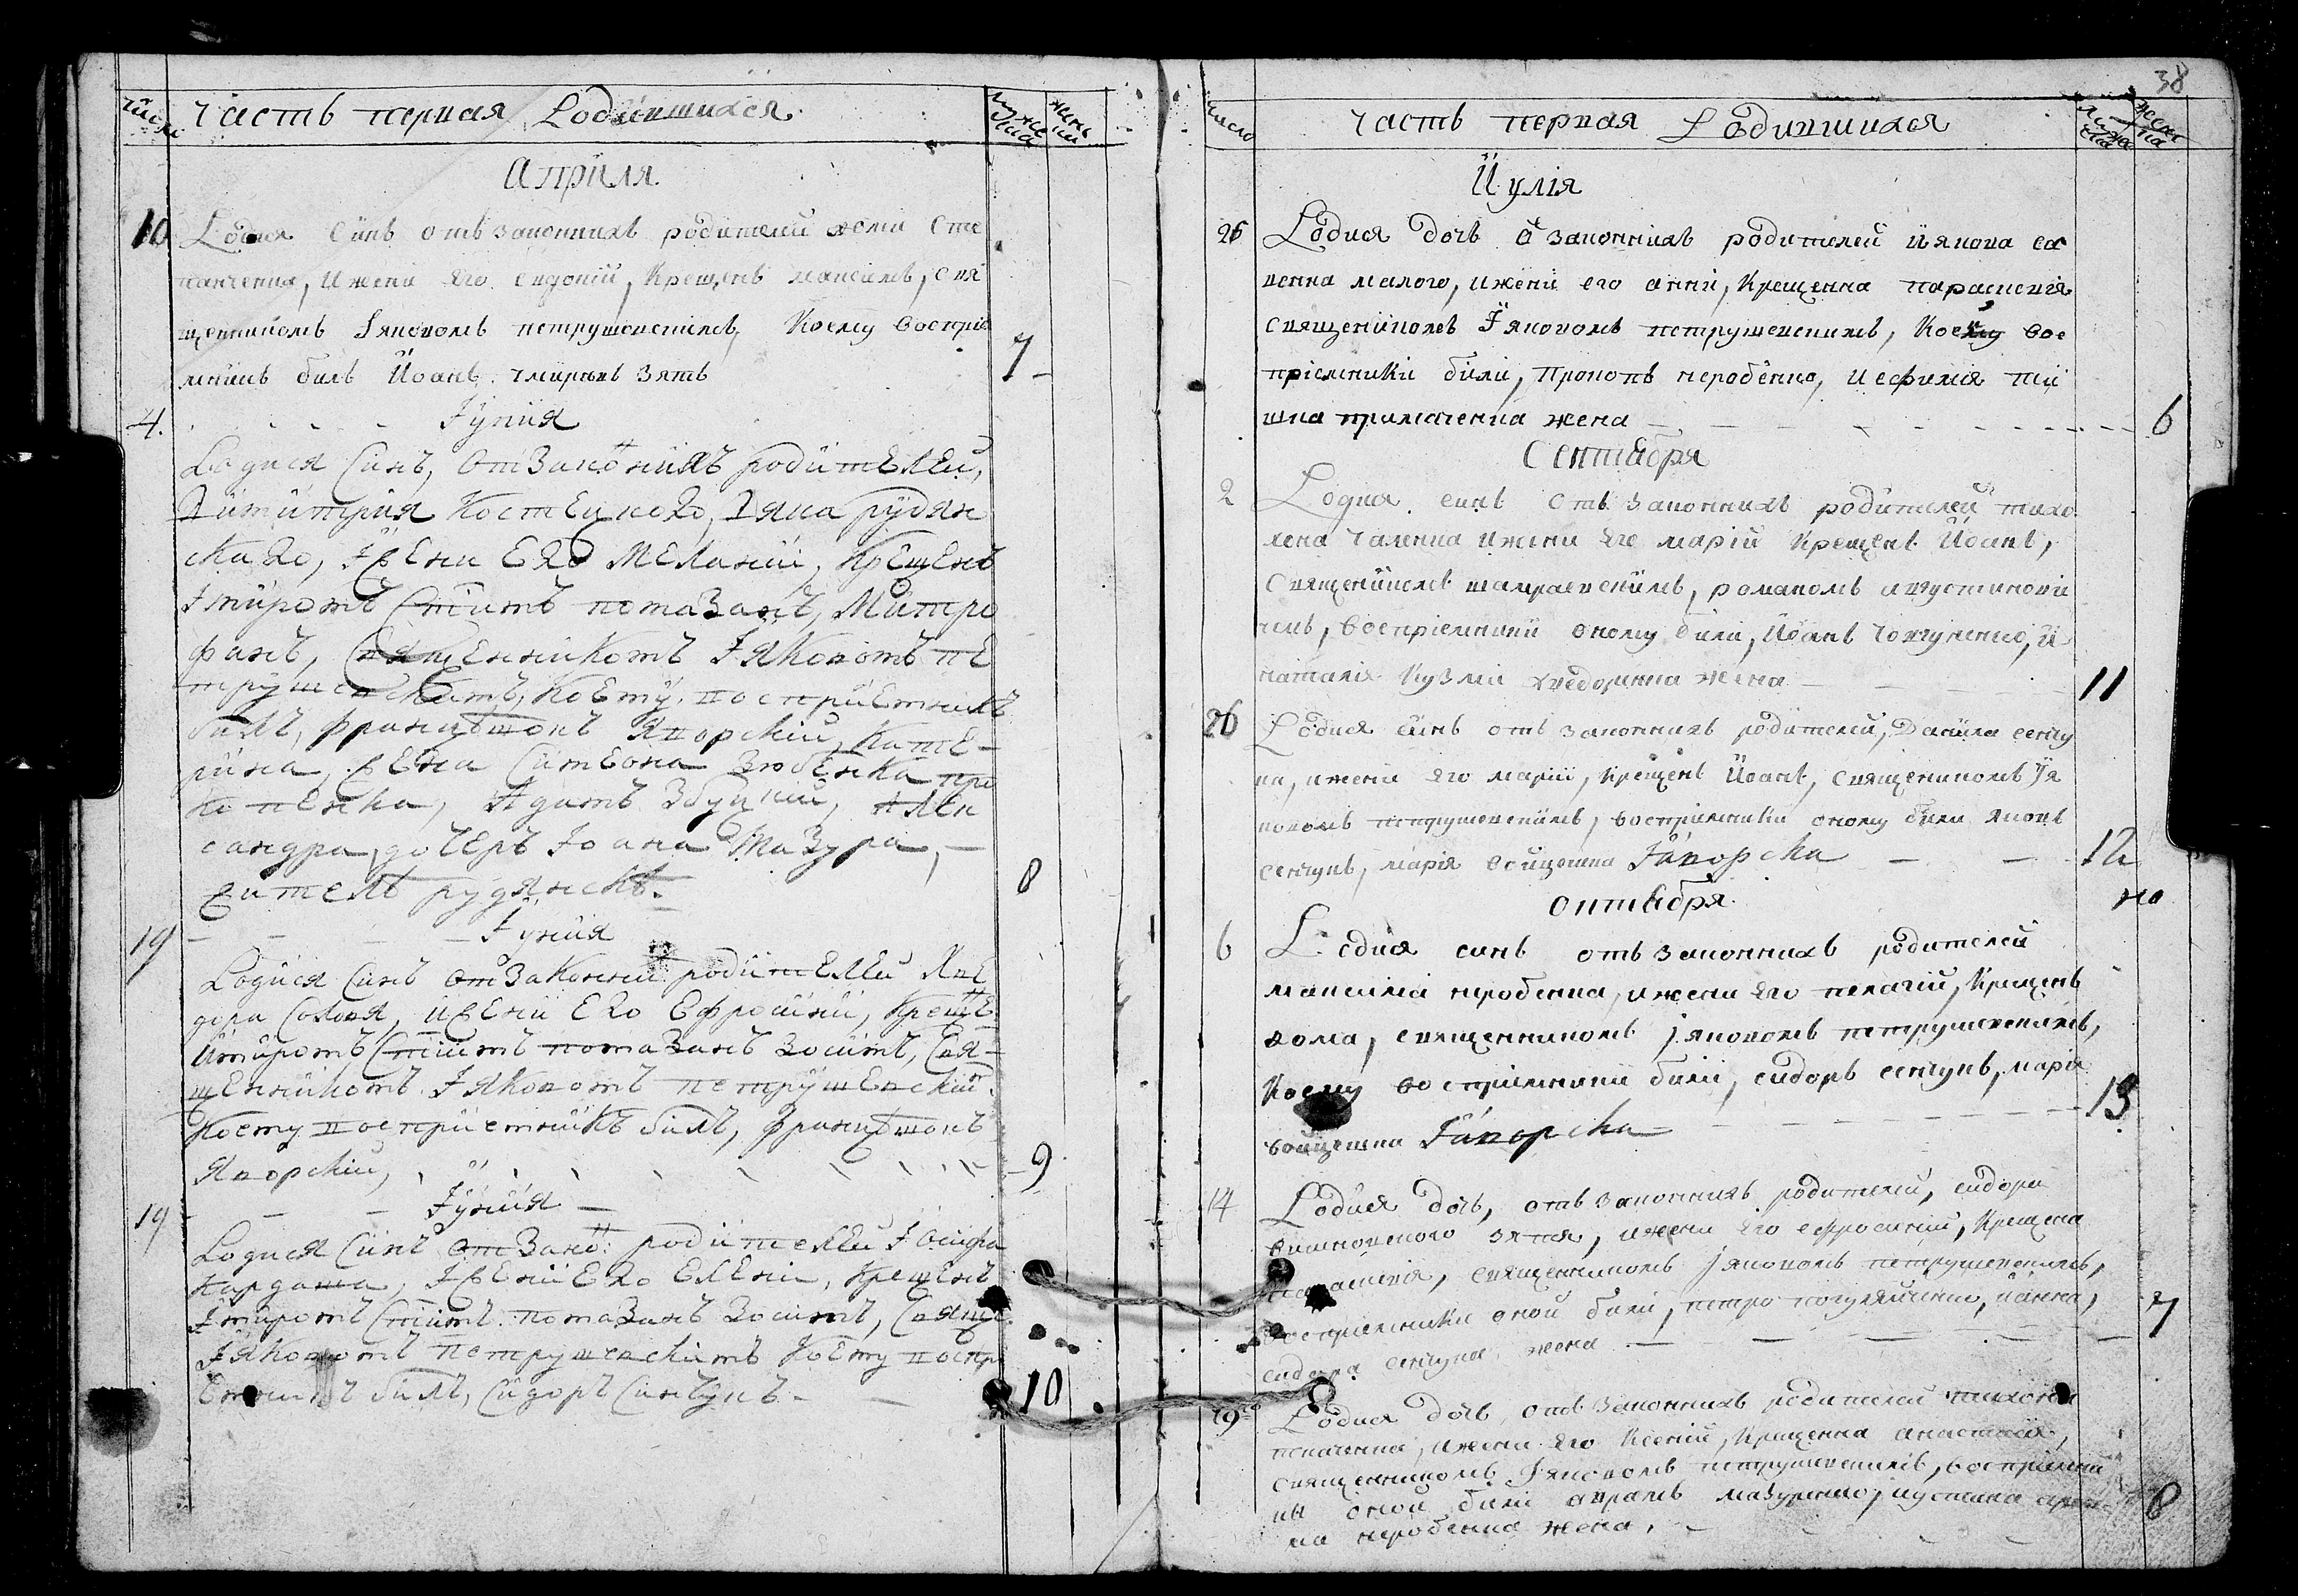 число
Часть первая Родившихся
мужеска
женск
Априля
10 Родися синъ отъ законнихъ родителей хоми сте
панченка, и жени его евдокіи, крещенъ максимъ, свя
щенникомъ Іяковомъ петрушевскимъ, коему воспріе
мникъ билъ Иоанъ зять
7
4. Іуния
Родися Синъ, отъ законихъ родителей,
Димитрия Костецкого, Дяка рудян
скаго, Іжени Его Меланіи, Крещенъ
І миромъ Стимъ помазанъ, Митро
фанъ, Священникомъ Іяковомъ пе
трушевскимъ, Коему воспрiемникъ
билъ, францишокъ Яворскій, Кате-
рина, жена Симеона Зюбенка про
копенка, Адамъ Збуцкий, Алек
сандра, дочеръ Іоана Мазура, -
житель рудянскъ.
8
19 - Іуния
Родися Синъ отъ Законни родителей Хве
дора Соловя, ижени Его Ефросинии, Креще
Имиромъ Стимъ помазанъ Зосимъ, Свя-
щенникомъ Іяковомъ петрушевским.
Коему воспрiемникъ билъ, францишокъ
Яворскій,
9
19 - Іуния
Родися Синъ отъ Зако: родителей Іосифа
Кардаша, Іжени Его Елени, крещенъ
Імиромъ Стимъ помазанъ Зосимъ, Священ.
Іяковомъ Петрушевскимъ Коему воспри
Емникъ билъ, Сидоръ Синчукъ -
10
38
число
Часть первая Родившихся
мужеска
женска
Иулія
26 Родися дочъ ѿ законнихъ родителей Иякова са
венка малого, ижени его анни, Крещенна параскевія
священникомъ Іяковомъ петрушевскимъ, Коему вос
пріемники били, Прокопъ неробенко, и ефимія
жена
6
Сентября
2 Родися синъ отъ законнихъ родителей тихо
ижени его маріи крещенъ Иоанъ,
Священикомъ романомъ августинови
чемъ, воспріемники оному били, Иоанъ Човгуненко, и
наталія Кузми хведоренка жена
11
26 Родися синъ отъ законнихъ родителей, Данила сенчу
ка, ижени его маріи, крещенъ Иоанъ, священикомъ Ія
ковомъ петрушевскимъ, воспріемники оному били яковъ
сенчукъ, марія войцешка Іаворска
12
но
октября
6 Родися синъ отъ законнихъ родителей
максима неробенка, ижени его пелагіи, Крещенъ
хома, священникомъ Іяковомъ петрушевскимъ,
Коему воспріемники били, сидоръ сенчукъ, марія
войцешка Іаворска
13
14 Родися дочъ, отъ законнихъ родителей, сидора
зятя, ижени его ефросиніи, Крещена
священникомъ Іяковомъ петрушевскимъ,
воспріемники оной били, петро и анна,
сидора сенчука жена
7
19 Родися дочъ, отъ законнихъ родителей тихона
ижени его Ксеніи, Крещенна анастасія,
священникомъ Іяковомъ петрушевскимъ, воспріемни
ки оной били аврамъ мазуренко,
неробенка жена.
8